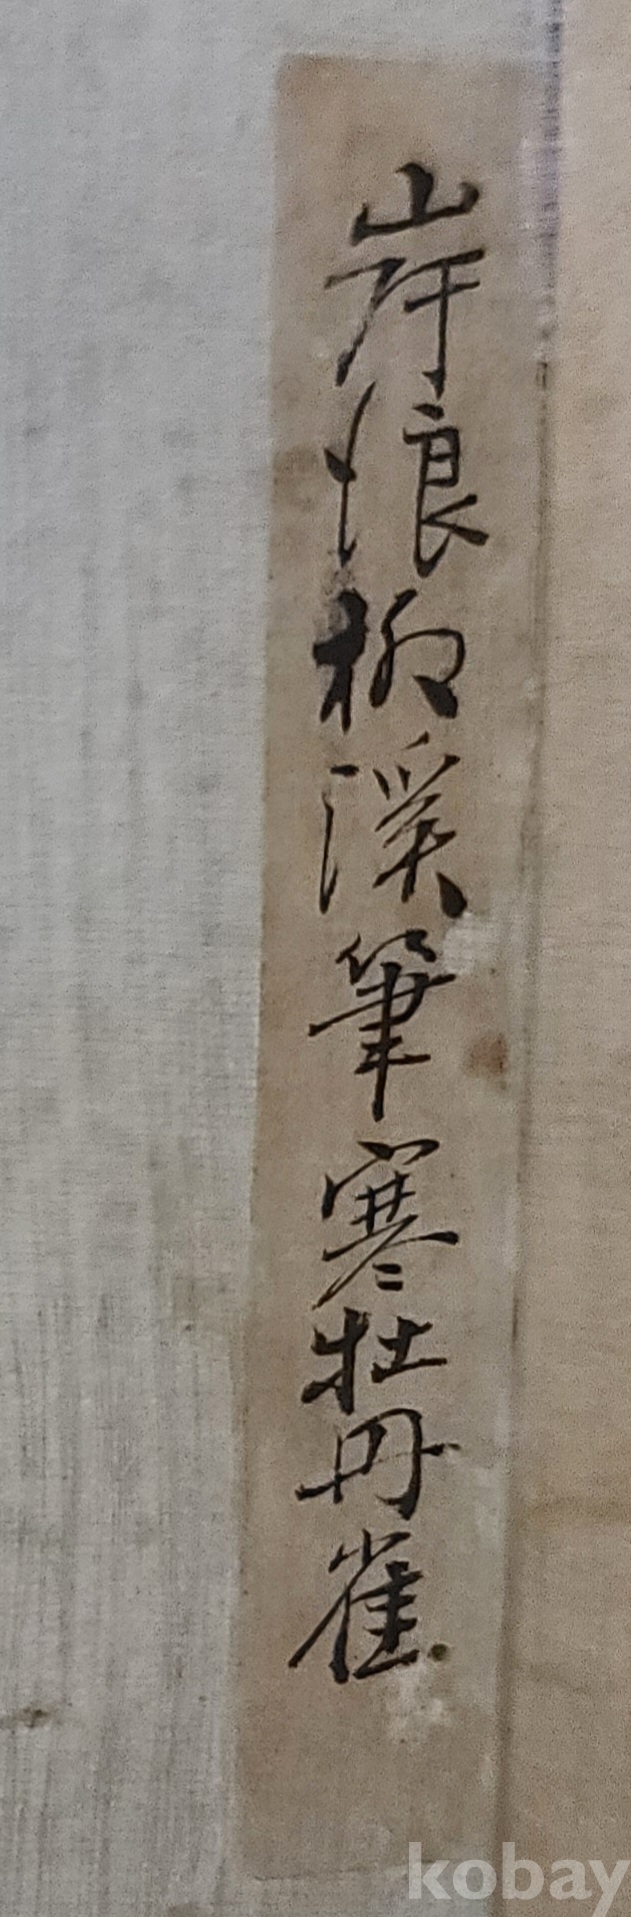 岸浪柳溪筆寒牡丹雀
kobay